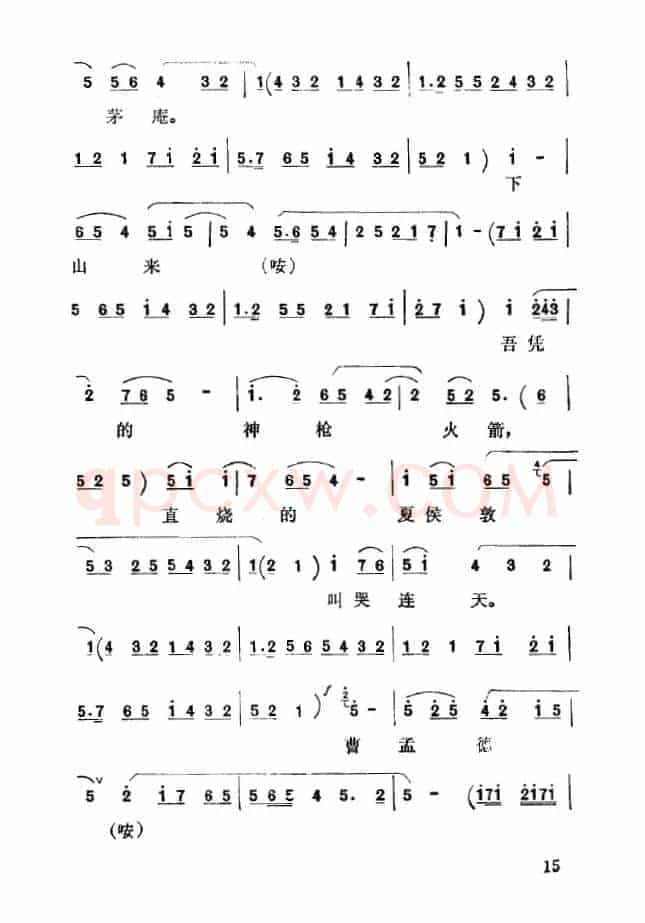 5 56 4 32 | 1(432 1432 | 1.2552432 |
茅 庵。
12 1 7i 2i | 5.7 65 i4 32 | 52 1 ) i - |
下
65 4 5i 5 | 5 4 5.654 | 25217 | 1 - (7i 2i |
山 来 (咹)
5 65 i4 32 | 1.2 55 21 7i | 27 i ) i 243 |
吾 凭
2 765 - | i. 2 65 42 | 2 52 5. (6 |
的 神 枪 火 箭,
525 ) 5i i | 7 654 - | i 5i 65 5 |
直 烧 的 夏 侯 敦
53 255432 | 1(2 1 ) i 76 | 5i 4 3 2 |
叫 哭 连 天。
1(4 321432 | 1.2565432 | 12 1 7i 2i |
5.7 65 i432 | 52 1 ) 5 - | 5 25 42 i5 |
曹 孟 德
5 2 i7 65 | 565 4 5. 2 | 5 - (i7i 2i7i |
(咹)
15
qpcxw.COM